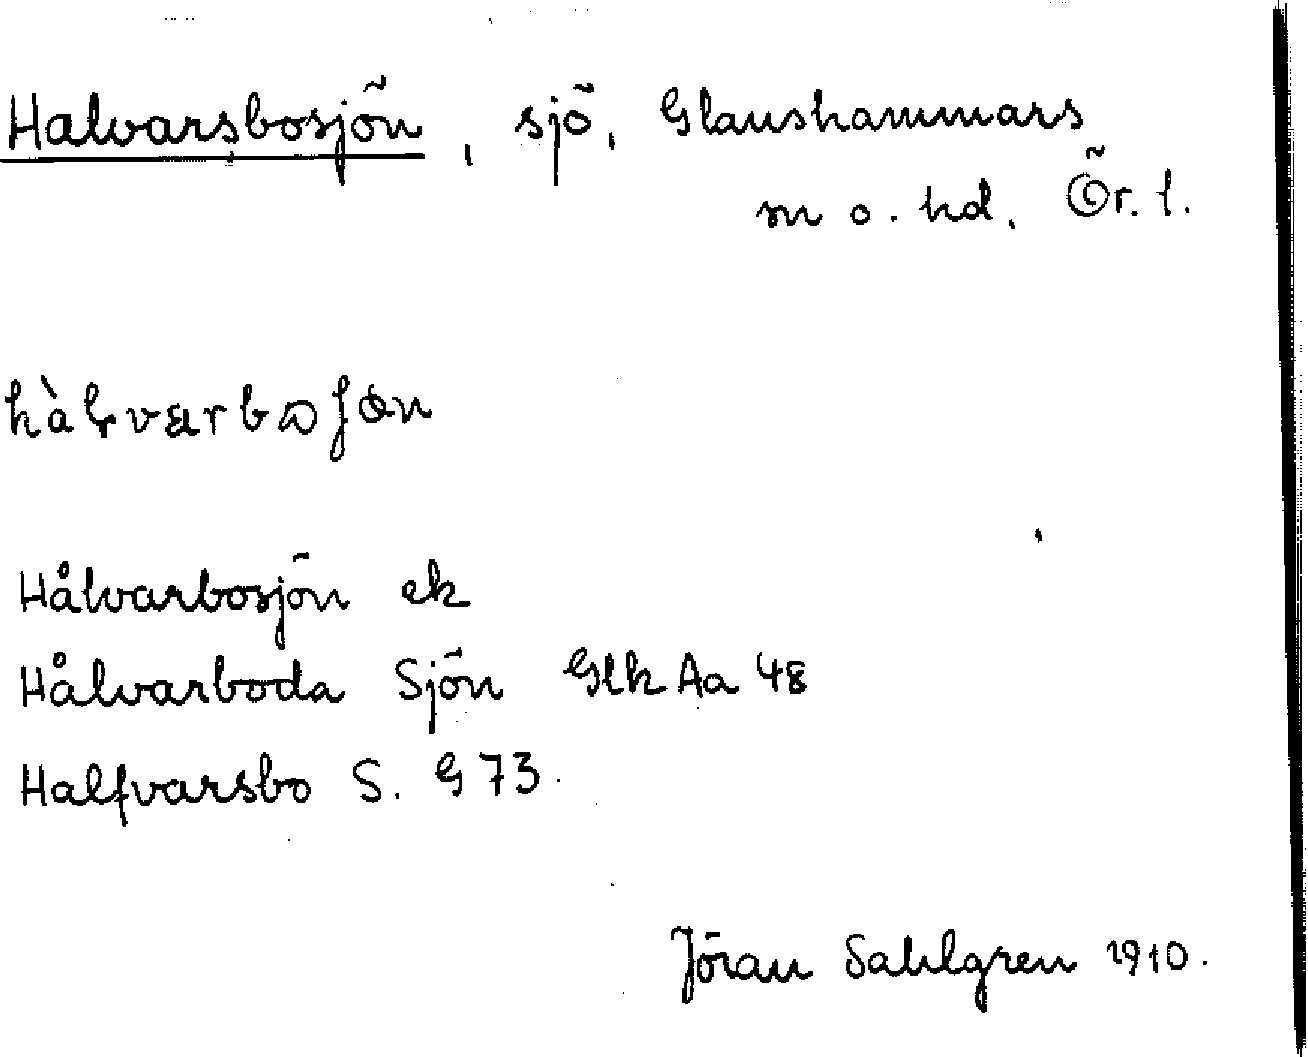 Halvarsbosjön, sjö, Glanshammars
m o. hd. Ör. l.
Hålvarbosjön ek
Hålvarboda Sjön GlkAa 48
Halfvarsbo S. G 73.
Jöran Sahlgren 1910.